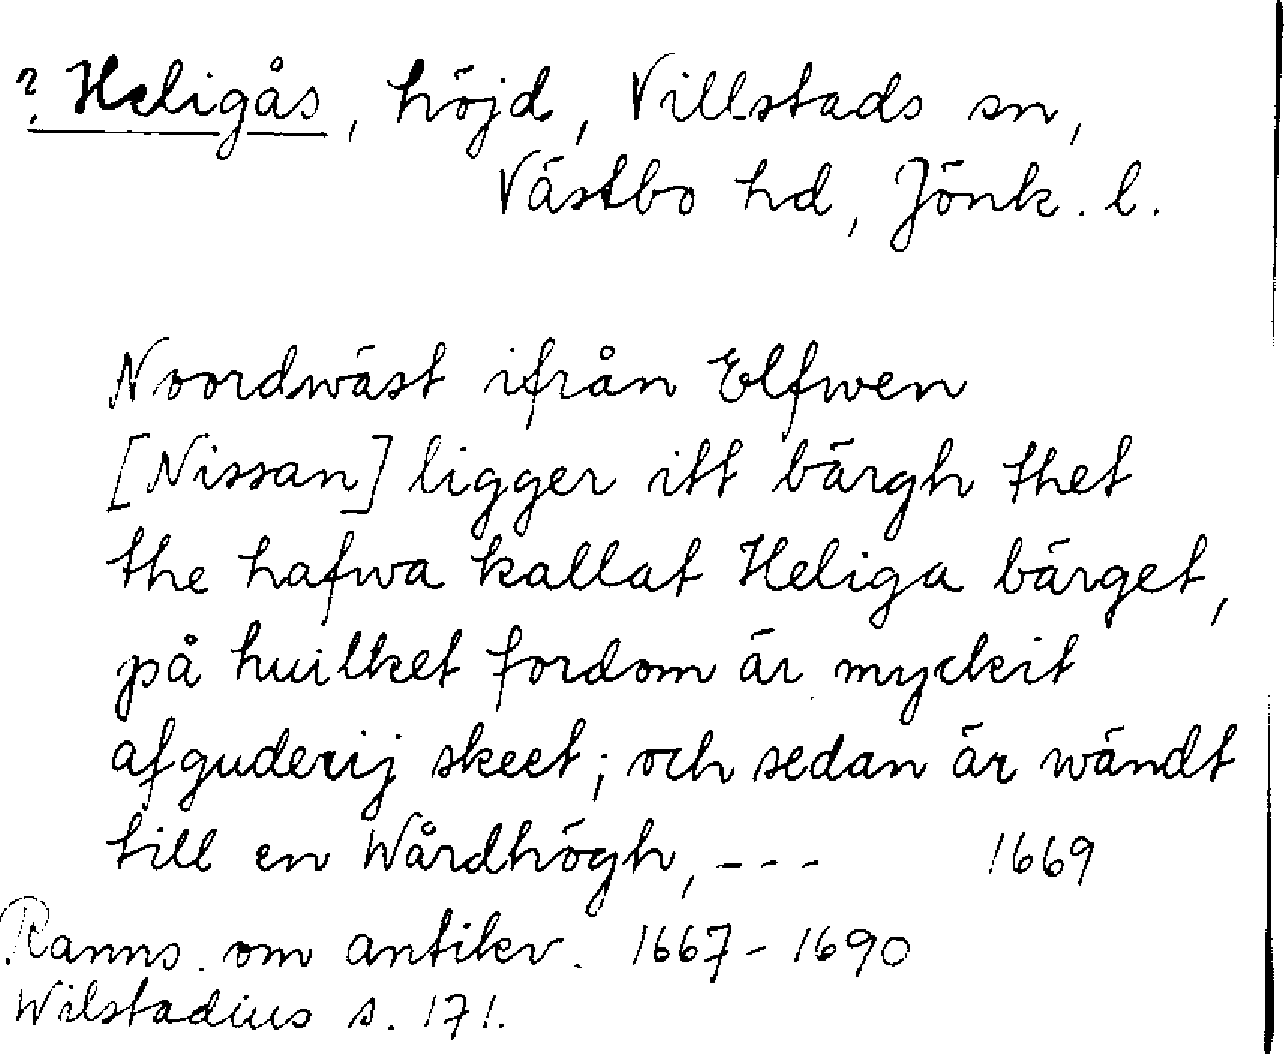 ? Heligås, höjd, Villstads sn,
Västbo hd, Jönk. l.
Noordwäst ifrån Elfwen
[Nissan] ligger itt bärgh thet
the hafwa kallat Heliga bärget,
på huilket fordom är myckit
afguderij skeet; och sedan är wändt
till en Wårdhögh, --- 1669
Ranns. om antikv. 1667-1690
Wilstadius s. 171.